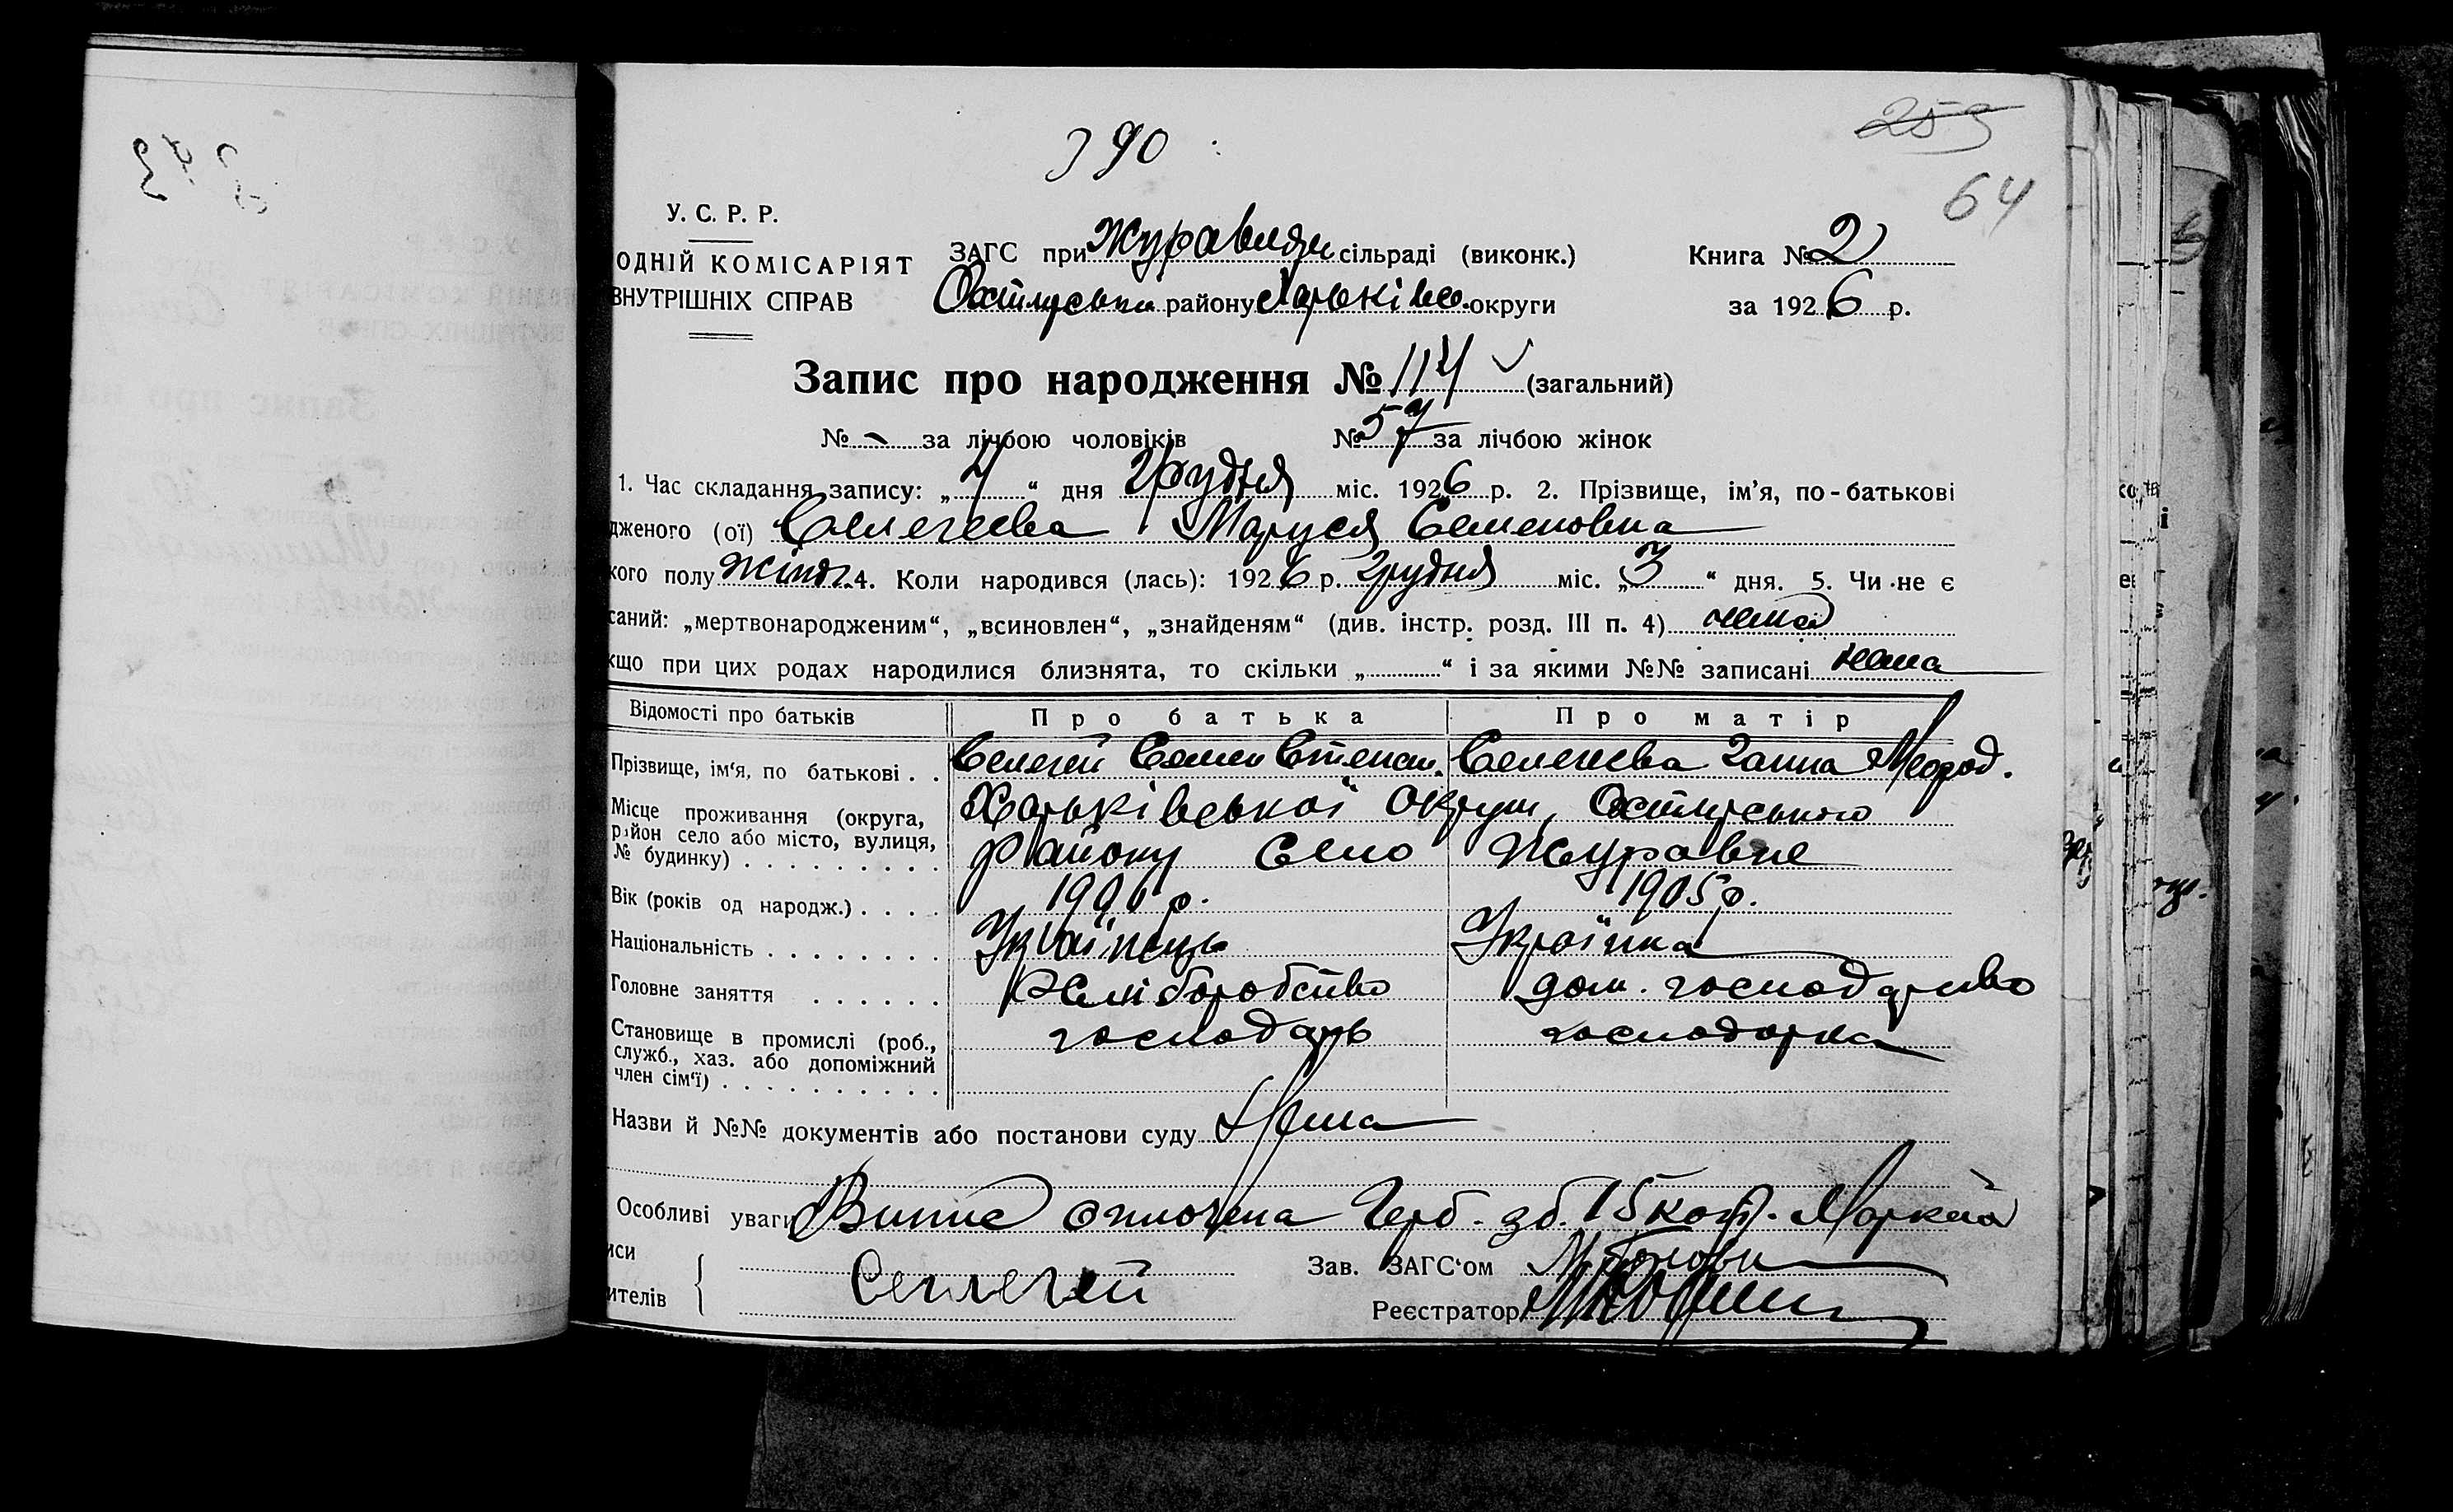 390
253
64
У. С. Р. Р.
ОДНІЙ КОМІСАРІЯТ
ВНУТРІШНІХ СПРАВ
ЗАГС при сільраді (виконк.)
району Харьківс. округи
Книга № 2
за 1926 р.
Запис про народження № 114 (загальний)
№ - за лічбою чоловіків № 57 за лічбою жінок
1. Час складання запису: „ 7 “ дня Грудня міс. 1926 р. 2. Прізвище, ім'я, по-батькові
дженого (ої) Селегеева Маруся Семеновна
кого полу жіноч. 4. Коли народився (лась): 1926 р. Грудня міс. „ 3 “ дня. 5. Чи не є
саний: „мертвонародженим“, „всиновлен“, „знайденям“ (див. інстр. розд. III п. 4) нема
кщо при цих родах народилися близнята, то скільки „ “ і за якими №№ записані нема
Відомості про батьків Про батька Про матір
Прізвище, ім'я, по батькові . . Селегей Семен Степан. Селегеева Ганна
Місце проживання (округа,
район село або місто, вулиця,
№ будинку) . . . . . . . . .
Харьківської Округи, Охтирського
Району Село Журавне
Вік (років од народж.) . . . . 1905 р.
Національність . . . . . . . . Українець Українка
Головне заняття . . . . . . Хліборобство дом. господарство
Становище в промислі (роб.,
служб., хаз. або допоміжний
член сім'ї) . . . . . . . . . .
господарь господарка
Назви й №№ документів або постанови суду Нема
Особливі уваги Випис оплочена Герб. зб. 15 коп. Маркой
иси
ителів
Селегей
Зав. ЗАГС'ом
Реєстратор